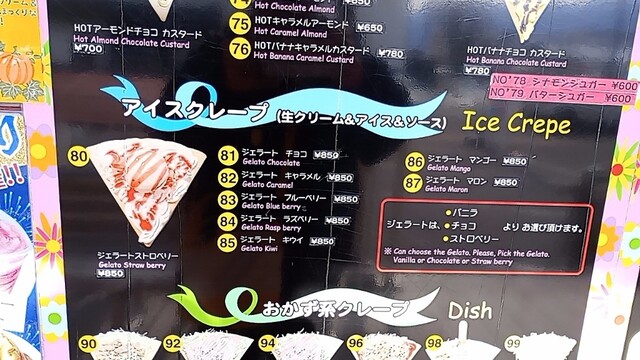 74
Hot Chocolate Almond
75 HOTキャラメルアーモンド ¥650
Hot Caramel Almond
76 HOTバナナキャラメルカスタード
Hot Banana Caramel Custard ¥780
HOTアーモンドチョコ カスタード
Hot Almond Chocolate Custard
¥700
HOTバナナチョコ カスタード
Hot Banana Chocolate Custard
¥780
NO°78 シナモンシュガー ¥600
NO°79 バターシュガー ¥600
アイスクレープ (生クリーム&アイス&ソース) Ice Crepe
80
ジェラートストロベリー
Gelato Straw berry
¥850
81 ジェラート チョコ ¥850
Gelato Chocolate
82 ジェラート キャラメル ¥850
Gelato Caramel
83 ジェラート ブルーベリー ¥850
Gelato Blue berry
84 ジェラート ラズベリー ¥850
Gelato Rasp berry
85 ジェラート キウイ ¥850
Gelato Kiwi
86 ジェラート マンゴー ¥850
Gelato Mango
87 ジェラート マロン ¥850
Gelato Maron
ジェラートは、
●バニラ
●チョコ
●ストロベリー
よりお選び頂けます。
※ Can choose the Gelato, Please, Pick the Gelato.
Vanilla or Chocolate or Straw berry
おかず系クレープ Dish
90 92 94 96 98 99